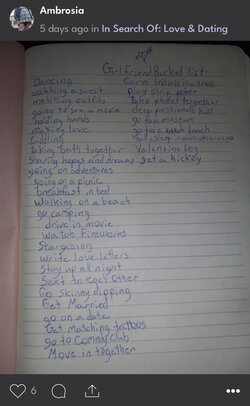 Ambrosia
5 days ago in In Search Of: Love & Dating
Girl Friend Bucket list:
Dancing
watching a sunset
matching outfits
going to see a movie
holding hands
making love
Cuddling
Taking bath together
Sharing hopes and dreams
going on adventures
going on a picnic
breakfast in bed
Walking on a beach
go camping
drive in movie
Watch Fireworks
Stargazing
Write love letters
Stay up all night
Sext to each other
Go skinny dipping
Get Married
go on a date
Get matching tattoos
go to Comedy Club
Move in together
Carve initials in a tree
Play strip poker
Take photos together
Deep passionate kiss
go to a museum
go to a beach
Fall asleep in each others arms
Valentine Day
get a hickey
6